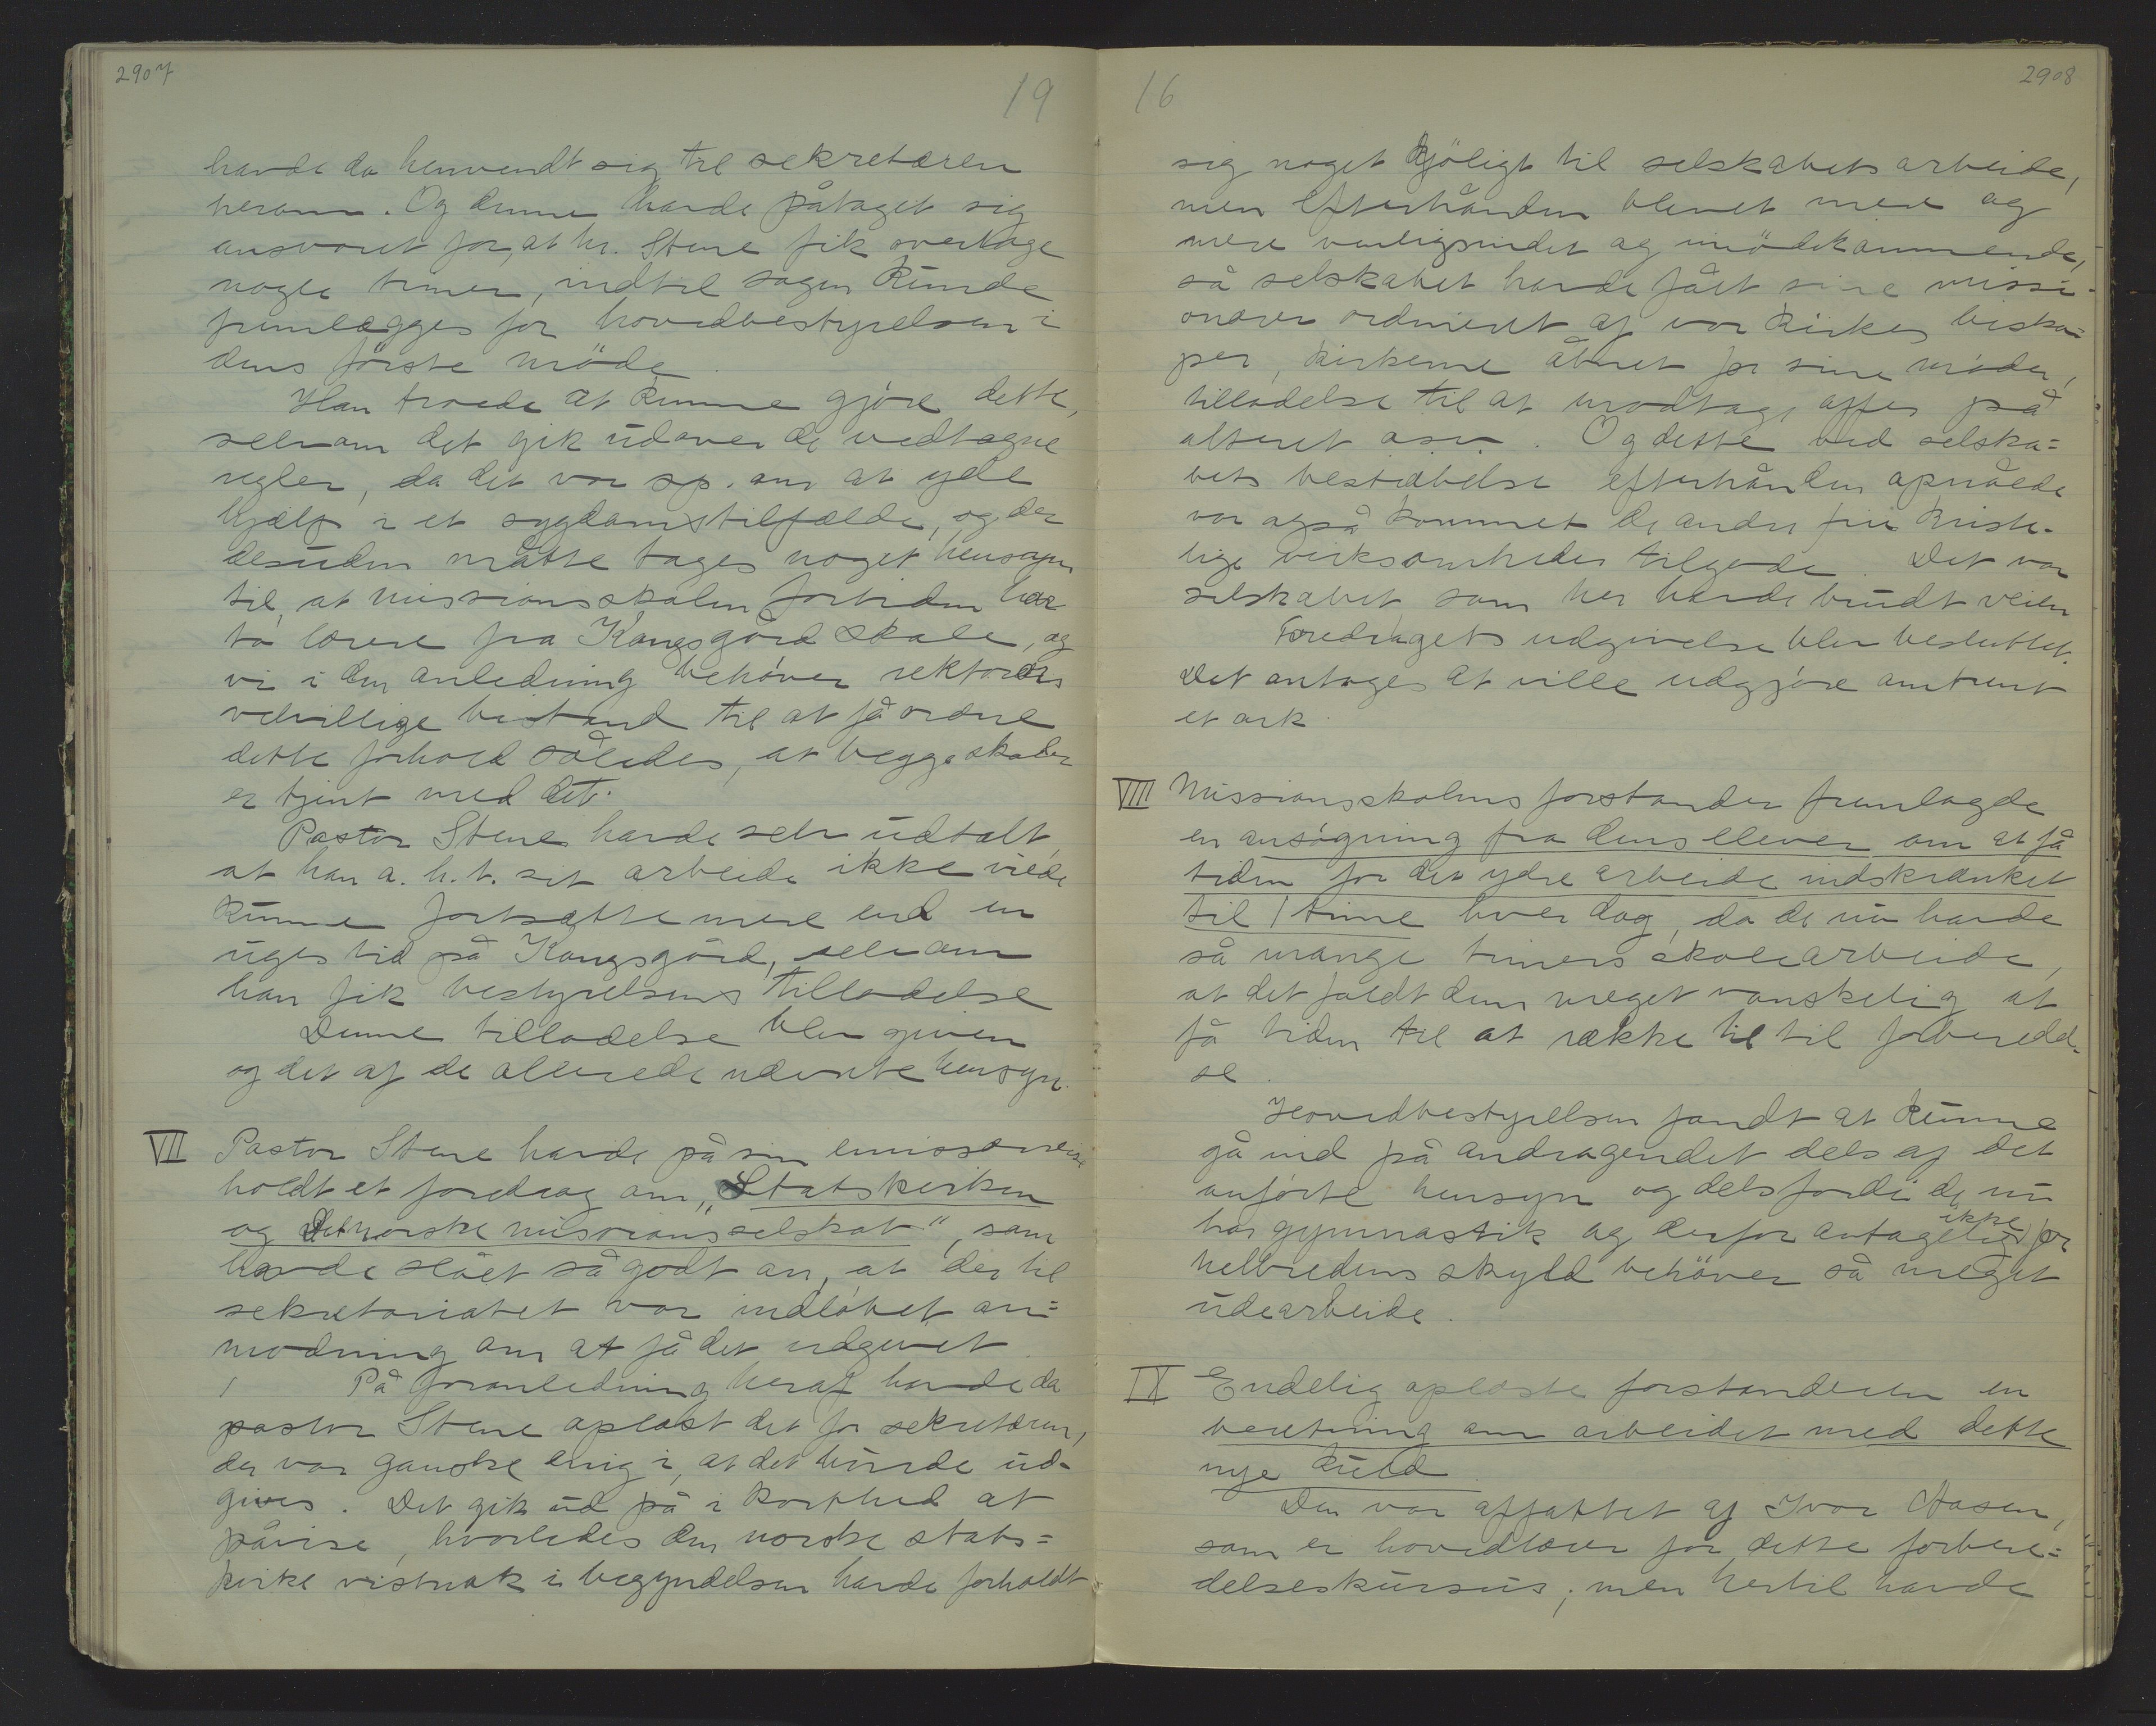 2907
19
havde da henvendt sig til sekretæren
herom. Og denne havde påtaget sig
ansvaret for, at hr. Stene fik overtage
nogle timer, indtil sagen kunde
fremlægges for hovedbestyrelsen i
dens förste möde.
Han troede at kunne gjöre dette,
selvom det gik udover de vedtagne
regler, da det var sp. om at yde
hjælp i et sygdomstilfælde, og der
desuden måtte tages noget hensyn
til, at missionsskolen fortiden har
to lærere fra Kongsgård skole, og
vi i den anledning behöver rektorens
velvillige bistand til at få ordne
dette forhold således, at begge skoler
er tjent med det.
Pastor Stene havde selv udtalt,
at han a. h. t. sit arbeide ikke vilde
kunne fortsætte mere end en
uges tid på Kongsgård, selvom
han fik bestyrelsens tilladelse
Denne tilladelse blev given
og det af de allerede nævnte hensyn.
VII Pastor Stene havde på sin emissærreise
holdt et foredrag om „Statskirken
og Det norske missionsselskab", som
havde slået så godt an, at der til
sekretariatet var indlöbet an=
modning om at få det udgivet.
På foranledning heraf havde da
pastor Stene oplæst det for sekretæren,
der var ganske enig i, at det burde ud-
gives. Det gik ud på i korthed at
påvise, hvorledes den norske stats=
kirke vistnok i begyndelsen havde forholdt
16
2908
sig noget kjöligt til selskabets arbeide,
men efterhånden blevet mere og
mere venligsindet og imödekommende,
så selskabet havde fået sine missi-
onærer ordineret af vor kirkes bisko=
per, kirkerne åbnet for sine möder,
tilladelse til at modtage offer på
alteret osv. Og dette ved selska=
bets bestræbelse efterhånden opnåede
var også kommet de andre frie kriste-
lige virksomheder tilgode. Det var
selskabet som her havde brudt veien
Foredragets udgivelse blev besluttet.
Det antages at ville udgjöre omtrent
et ark.
VIII Missionsskolens forstander fremlagde
en ansögning fra dens elever om at få
tiden for det ydre arbeide indskrænket
til 1 time hver dag, da de nu havde
så mange timers skolearbeide,
at det faldt dem meget vanskelig at
få tiden til at række til til forberedel-
se.
Hovedbestyrelsen fandt at kunne
gå ind på andragendet dels af det
anförte hensyn og dels fordi de nu
har gymnastik og derfor antagelig ikke for
helbredens skyld behöver så meget
udearbeide.
IX Endelig oplæste forstanderen en
beretning om arbeidet med dette
nye kuld.
Den var affattet af Ivar Aasen,
som er hovedlærer for dette forbere=
delseskursus; men hertil havde